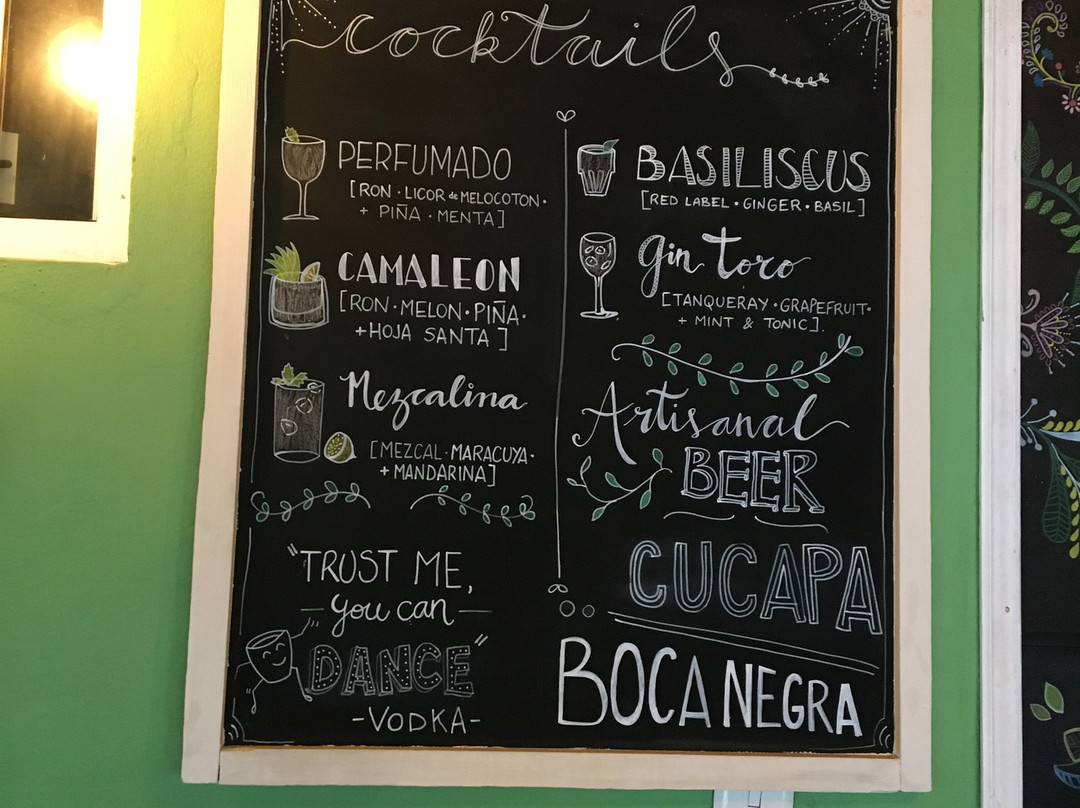 cocktails
PERFUMADO
[RON · LICOR de MELOCOTON ·
+ PIÑA · MENTA]
CAMALEON
[RON · MELON · PIÑA ·
+ HOJA SANTA]
Mezcalina
[MEZCAL · MARACUYA ·
+ MANDARINA]
"TRUST ME,
— you can —
DANCE"
-VODKA-
BASILISCUS
[RED LABEL · GINGER · BASIL]
Gin Toro
[TANQUERAY · GRAPEFRUIT ·
+ MINT & TONIC].
Artisanal
BEER
CUCAPA
BOCANEGRA